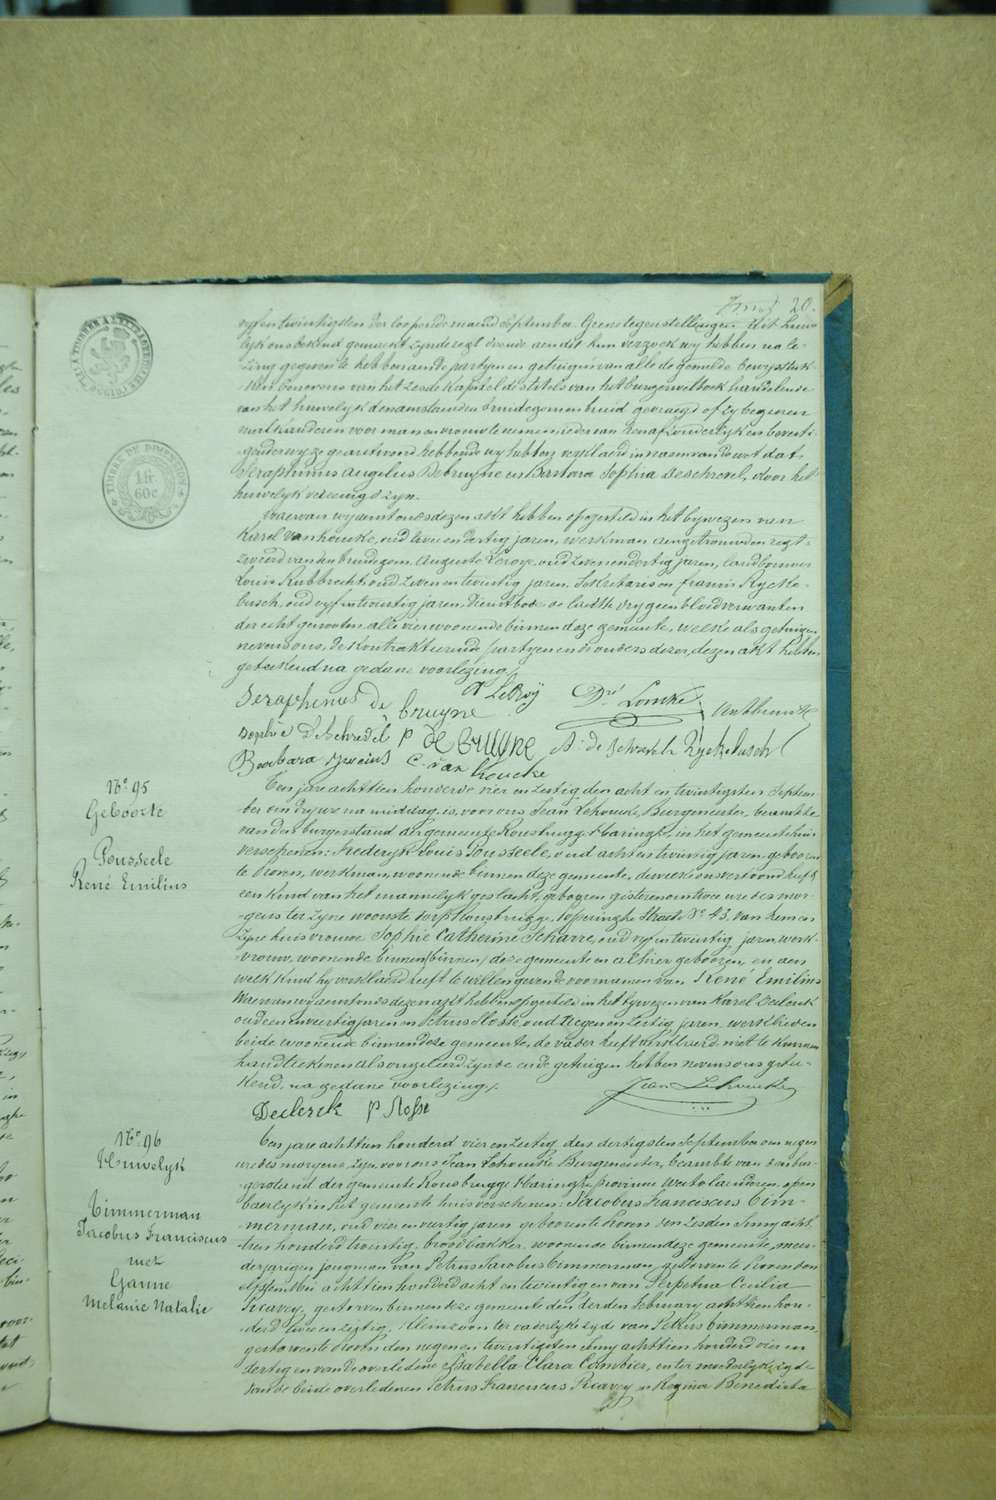 20.
vyfentwintigsten der loopende maend September. Geene tegenstellingen dit huwe-
lyk ons bekend gemaekt zynde regt doende aen dit hun verzoek wy hebben na le-
zing gegeven te hebben aende partyen en getuigen van alle de gemelde bewysstuk-
ken benevens van het zesde kapittel des titels van het burgerwetboek handelende
van het huwelyk den aenstaenden bruidegom en bruid gevraegd of zy begeeren
met kanderen voor man en vrouw te nemen ieder van hen afzonderlyk en bevesti-
gender wyze geantwoord hebbende wy hebben verklaerd in naem van de wet dat
Seraphinus Angelus Debruyne en Barbara Sophia Deschrevel, door het
huwelyk vereenigd zyn.
Waervan wy den tonds dezen akt hebben opgesteld in het bywezen van
Karel Vanhoucke, oud twee en dertig jaren, werkman aengetrouwden regt-
zweerd van den bruidegom, Auguste Leroye, oud zeven en dertig jaren, landbouwer
Louis Rubbrecht, oud zeven en twintig jaren, Sekretaris en Francis Rycke-
busch, oud vyf en twintig jaren, dienstbode de laetste dry geen bloedverwanten
der echtgenooten alle vier woonende binnen deze gemeente, welke als getuigen
nevens ons, de kontrakterende partyen en de ouders dezer, dezen akt hebben
geteekend na gedane voorlezing /
Seraphinus de bruyne
A LeRoÿ
Sophie d'Schrevel P de bruyne A. de Schrevele Ryckebusch
Barbara C. van houcke
No 95
Geboorte
Pousseele
René Emilius
Een jare achttien honderd vier en zestig den acht en twintigsten Septem-
ber om dry ure na middag, is voor ons Jean Lehoucke Burgemeester, beambte
van den burgerstand der gemeente Rousbrugge-Haringhe, in het gemeentehuis
verschenen: Frederyk Louis Pousseele, oud acht en twintig jaren, geboren
te Proven, werkman, woonende binnen deze gemeente, dewelke ons vertoond heeft
een kind van het mannelyk geslacht, geboren gisteren om twee ure des mor-
gens ter zyne woonste dorp Rousbrugge, Poperinghe Straete No 43, van hem en
zyne huisvrouwe Sophie Catherine Scharre, oud vyf en twintig jaren, werk-
vrouw, woonende binnen (binnen) deze gemeente en alhier geboren, en aen
welk kind hy verklaerd heeft te willen geven de voornamen van René Emilius
Waervan wy den tonds dezen akt hebben opgesteld in het bywezen van Karel Declerck
oud een en veertig jaren en Petrus Hoste, oud negen en zestig jaren, werklieden
beide woonende binnen deze gemeente, de vader heeft verklaerd niet te kunnen
handteekenen als ongeleerd zynde en de getuigen hebben nevens ons getee-
kend, na gedane voorlezing /.
Jean Lehoucke
Declerck
No 96
Huwelyk
Timmerman
Jacobus Franciscus
met
Ganne
Melanie Natalie
Een jare achttien honderd vier en zestig den dertigsten September om negen
ure des morgens, zyn voor ons Jean Lehoucke Burgemeester, beambte van den bur-
gerstand der gemeente Rousbrugge-Haringhe, provincie Westvlaenderen, open-
baerlyk in het gemeentehuis verschenen: Jacobus Franciscus Tim-
merman, oud vier en veertig jaren geboren te den zesden Juny acht-
tien honderd twintig, broodbakker, woonende binnen deze gemeente, meer-
derjarigen jongman van Petrus Jacobus Timmerman, gestorven te den
September achttien honderd acht en twintig en van Perpetua Cecilia
gestorven binnen deze gemeente den derden february achttien hon-
derd twee en zestig, kleinzoon ter vaderlyke zyde van Petrus Timmerman,
gestorven te den negen en twintigsten Juny achttien honderd vier en
dertig en van de overledene Isabella Clara Combier, en ter moederlyke zyde
van de beide overledenen Petrus Franciscus en Regina Benedicta
TIMBRE DE DIMENSION
1 fr.
60 c.